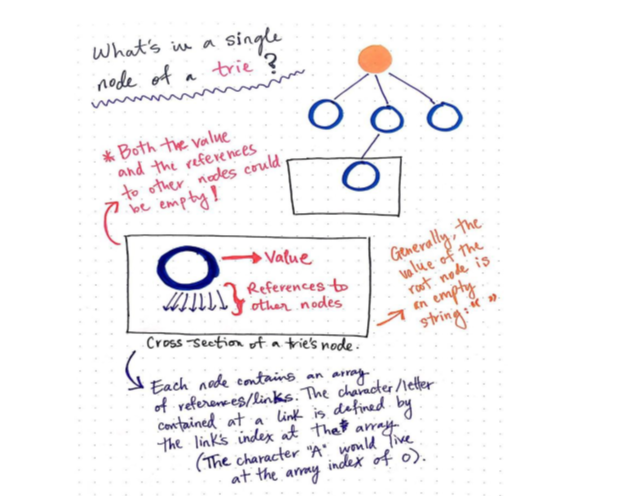 What's in a single
node of a trie?
* Both the value
and the references
to other nodes could
be empty!
Value
References to
other nodes
Generally, the
value of the
root node is
an empty
string: " "
Cross-section of a trie's node.
Each node contains an array
of references/links. The character/letter
contained at a link is defined by
the link's index at that array
(The character "A" would live
at the array index of 0).